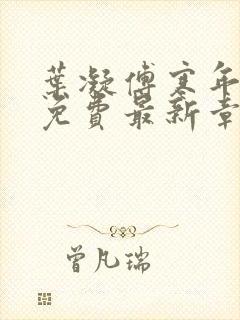 葉凝傅寒年
免費最新章
曾凡瑞